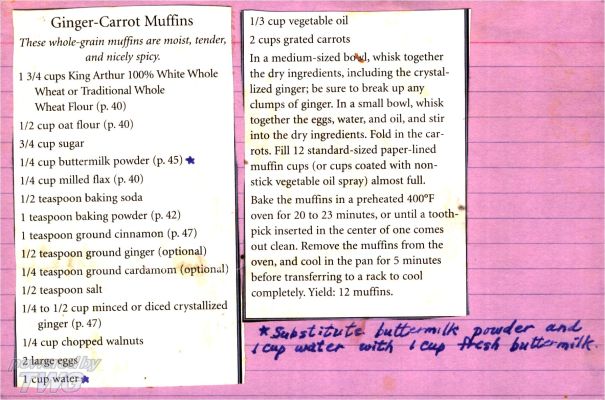 Ginger-Carrot Muffins
These whole-grain muffins are moist, tender,
and nicely spicy.
1 3/4 cups King Arthur 100% White Whole
Wheat or Traditional Whole
Wheat Flour (p. 40)
1/2 cup oat flour (p. 40)
3/4 cup sugar
1/4 cup buttermilk powder (p. 45) ★
1/4 cup milled flax (p. 40)
1/2 teaspoon baking soda
1 teaspoon baking powder (p. 42)
1 teaspoon ground cinnamon (p. 47)
1/2 teaspoon ground ginger (optional)
1/4 teaspoon ground cardamom (optional)
1/2 teaspoon salt
1/4 to 1/2 cup minced or diced crystallized
ginger (p. 47)
1/4 cup chopped walnuts
2 large eggs
1 cup water ★
powered by
TWG
1/3 cup vegetable oil
2 cups grated carrots
In a medium-sized bowl, whisk together
the dry ingredients, including the crystal-
lized ginger; be sure to break up any
clumps of ginger. In a small bowl, whisk
together the eggs, water, and oil, and stir
into the dry ingredients. Fold in the car-
rots. Fill 12 standard-sized paper-lined
muffin cups (or cups coated with non-
stick vegetable oil spray) almost full.
Bake the muffins in a preheated 400°F
oven for 20 to 23 minutes, or until a tooth-
pick inserted in the center of one comes
out clean. Remove the muffins from the
oven, and cool in the pan for 5 minutes
before transferring to a rack to cool
completely. Yield: 12 muffins.
★ Substitute buttermilk powder and
1 cup water with 1 cup fresh buttermilk.